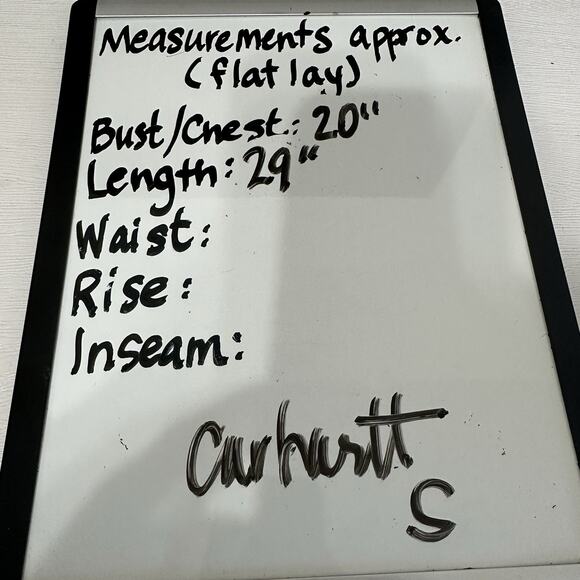 Measurements approx.
(flat lay)
Bust/Chest: 20"
Length: 29"
Waist:
Rise:
Inseam:
Carhartt
S